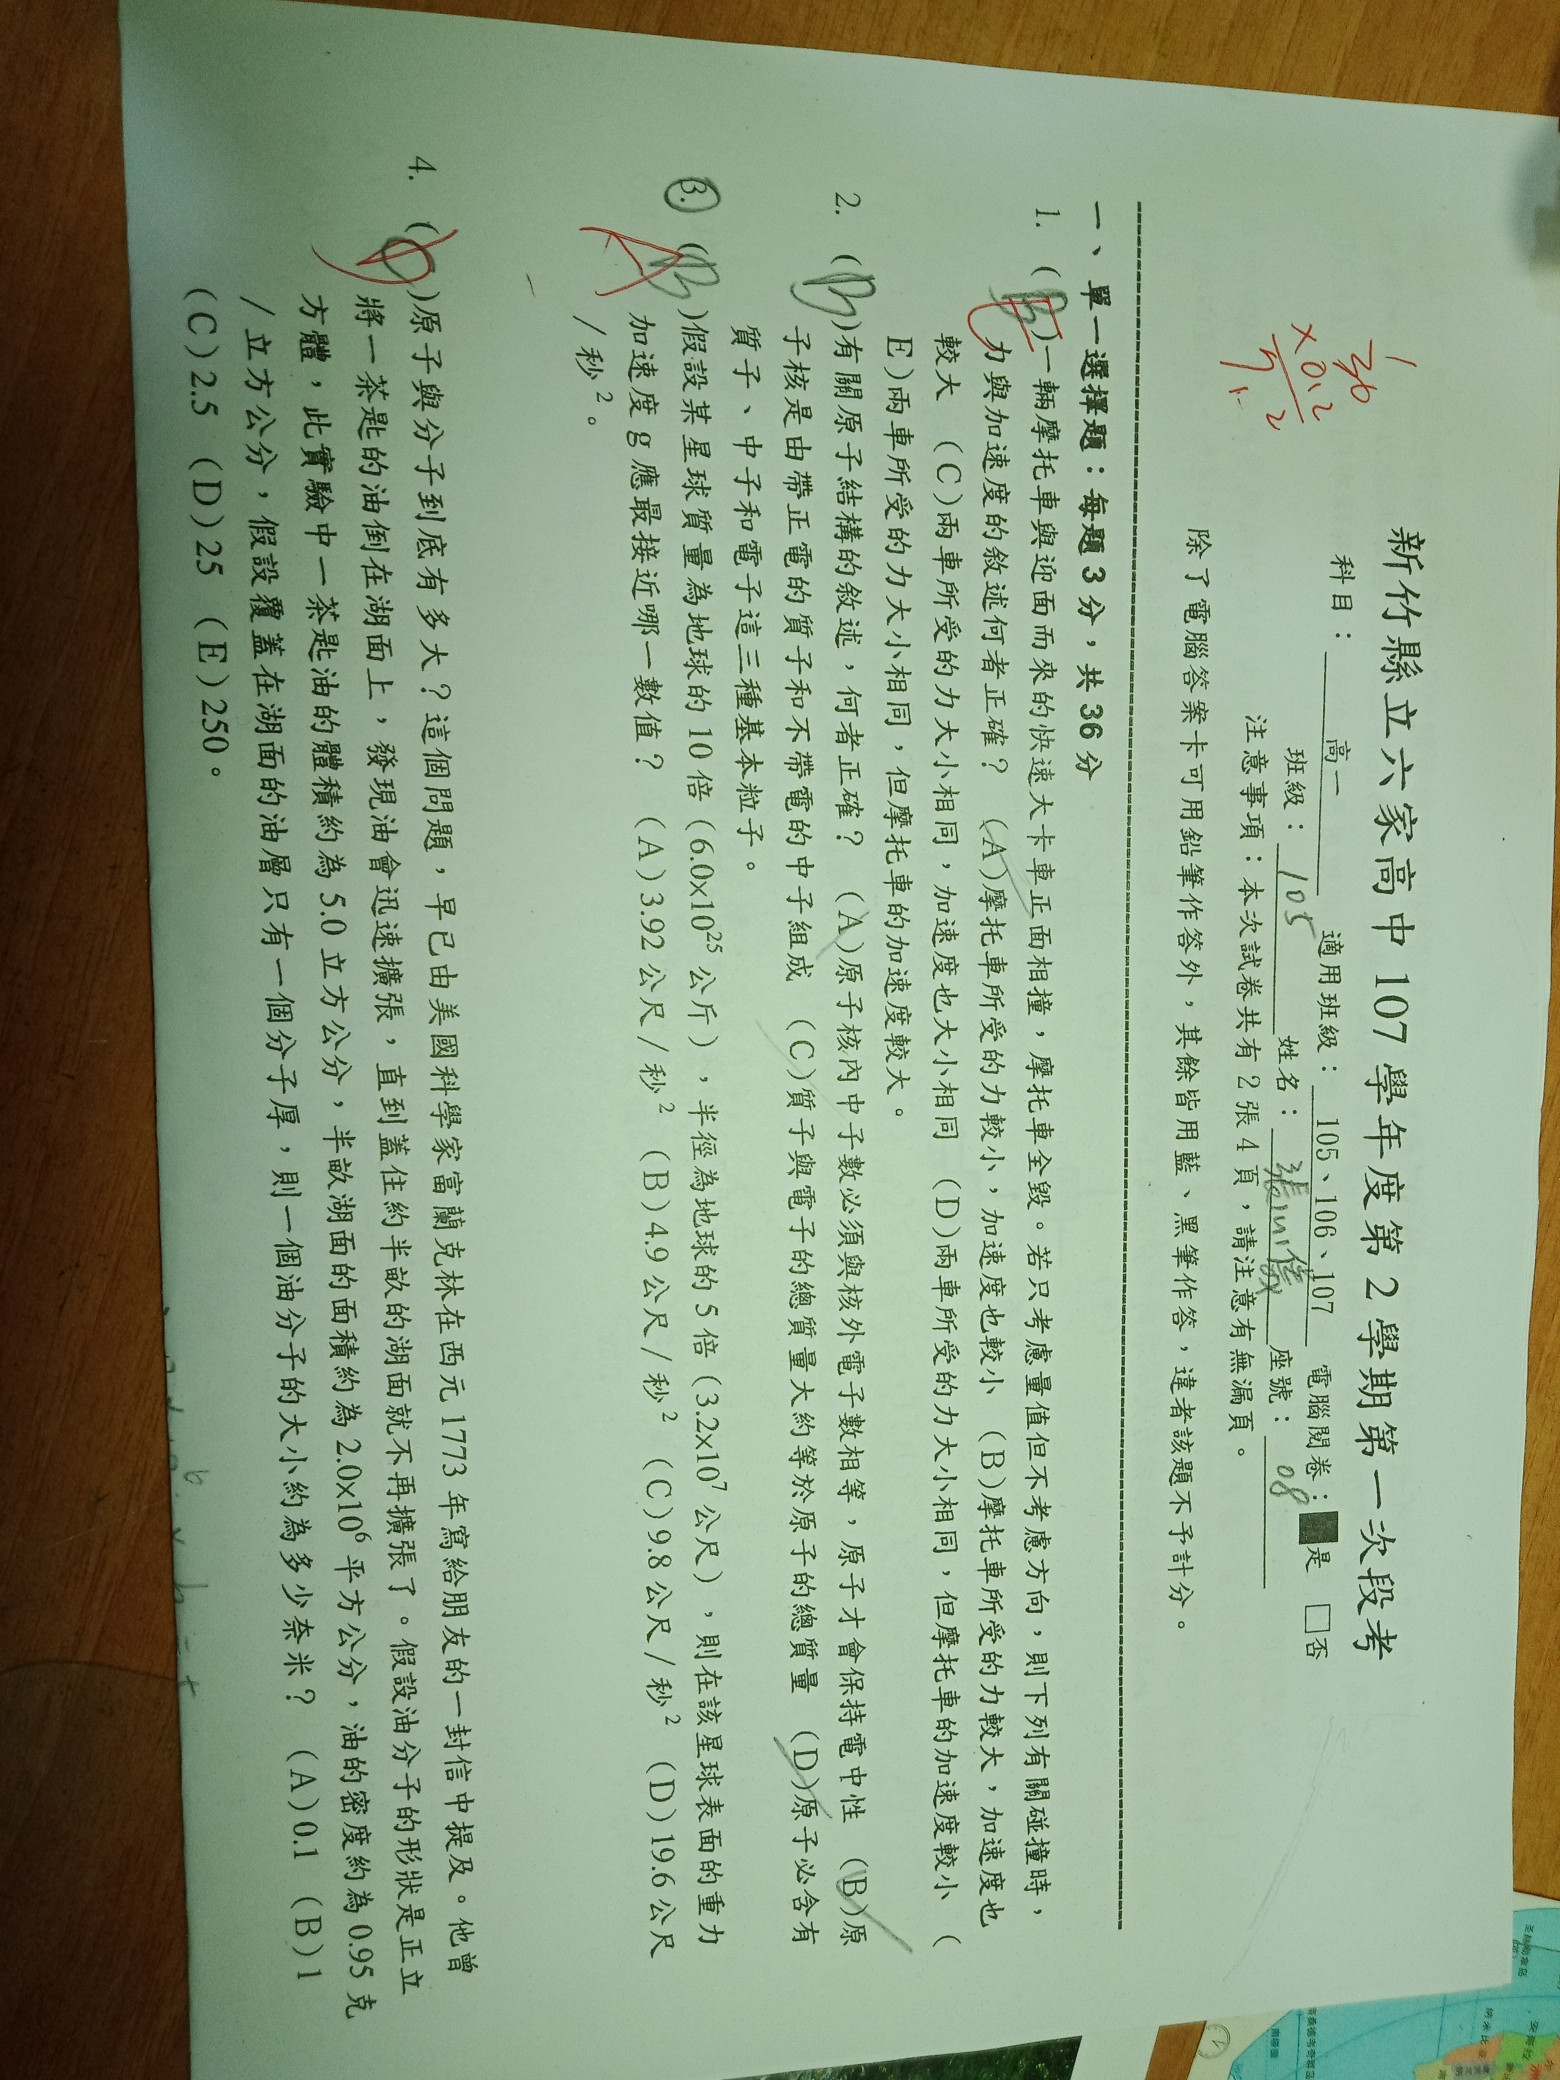 新竹縣立六家高中 107 學年度第 2 學期第一次段考
科目：高一 適用班級：105、106、107 電腦閱卷：■是 □否
班級：105 姓名： 座號：08
注意事項：本次試卷共有 2 張 4 頁，請注意有無漏頁。
除了電腦答案卡可用鉛筆作答外，其餘皆用藍、黑筆作答，違者該題不予計分。
36
×0.2
一、單一選擇題：每題 3 分，共 36 分
1. (B)一輛摩托車與迎面而來的快速大卡車正面相撞，摩托車全毀。若只考慮量值但不考慮方向，則下列有關碰撞時，
力與加速度的敘述何者正確？ (A)摩托車所受的力較小，加速度也較小 (B)摩托車所受的力較大，加速度也
較大 (C)兩車所受的力大小相同，加速度也大小相同 (D)兩車所受的力大小相同，但摩托車的加速度較小 (
E)兩車所受的力大小相同，但摩托車的加速度較大。
2. (B)有關原子結構的敘述，何者正確？ (A)原子核內中子數必須與核外電子數相等，原子才會保持電中性 (B)原
子核是由帶正電的質子和不帶電的中子組成 (C)質子與電子的總質量大約等於原子的總質量 (D)原子必含有
質子、中子和電子這三種基本粒子。
3. (B)假設某星球質量為地球的 10 倍（6.0x10²⁵ 公斤），半徑為地球的 5 倍（3.2x10⁷ 公尺），則在該星球表面的重力
A
加速度 g 應最接近哪一數值？ (A)3.92 公尺／秒² (B)4.9 公尺／秒² (C)9.8 公尺／秒² (D)19.6 公尺
／秒²。
4. ( )原子與分子到底有多大？這個問題，早已由美國科學家富蘭克林在西元 1773 年寫給朋友的一封信中提及。他曾
將一茶匙的油倒在湖面上，發現油會迅速擴張，直到蓋住約半畝的湖面就不再擴張了。假設油分子的形狀是正立
方體，此實驗中一茶匙油的體積約為 5.0 立方公分，半畝湖面的面積約為 2.0x10⁶ 平方公分，油的密度約為 0.95 克
／立方公分，假設覆蓋在湖面的油層只有一個分子厚，則一個油分子的大小約為多少奈米？ (A)0.1 (B)1
(C)2.5 (D)25 (E)250。